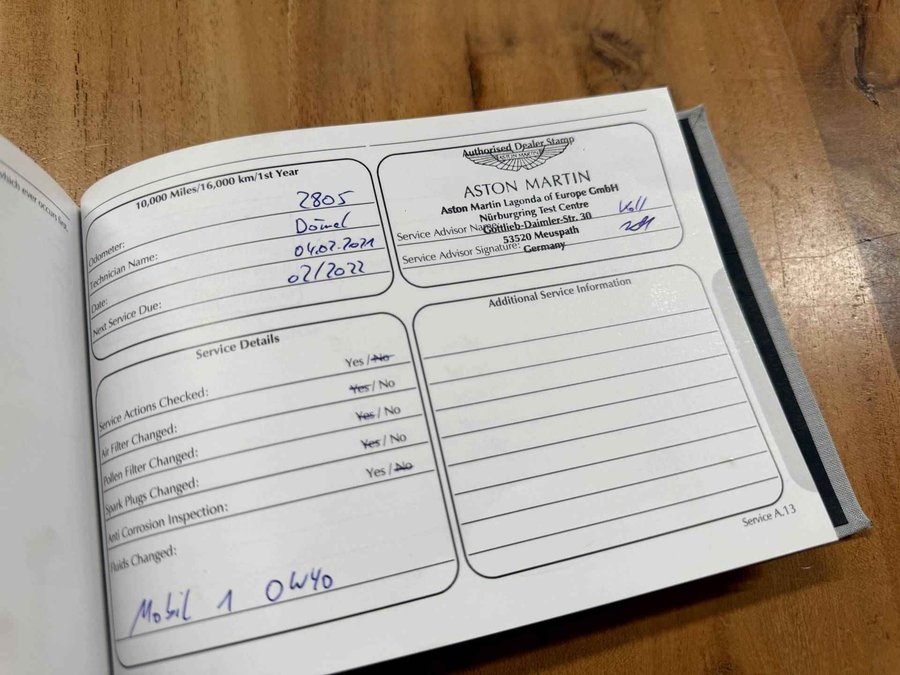 which ever occurs first.
10,000 Miles/16,000 km/1st Year
Odometer: 2805
Technician Name: Dömel
Date: 04.02.2021
Next Service Due: 02/2022
Authorised Dealer Stamp
ASTON MARTIN
ASTON MARTIN
Aston Martin Lagonda of Europe GmbH
Nürburgring Test Centre
Gottlieb-Daimler-Str. 30
Service Advisor Name:
53520 Meuspath
Service Advisor Signature:
Germany
Service Details
Service Actions Checked: Yes / No
Air Filter Changed: Yes / No
Pollen Filter Changed: Yes / No
Spark Plugs Changed: Yes / No
Anti Corrosion Inspection: Yes / No
Fluids Changed:
Mobil 1 0W40
Additional Service Information
Service A.13